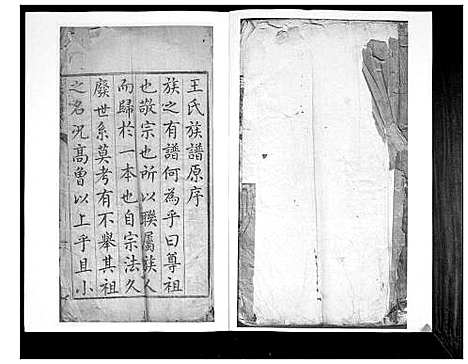 王氏族譜原序
族之有譜何為乎曰尊祖
也敬宗也所以聯屬族人
而歸於一本也自宗法久
廢世系莫考有不舉其祖
之名況高曾以上乎且小